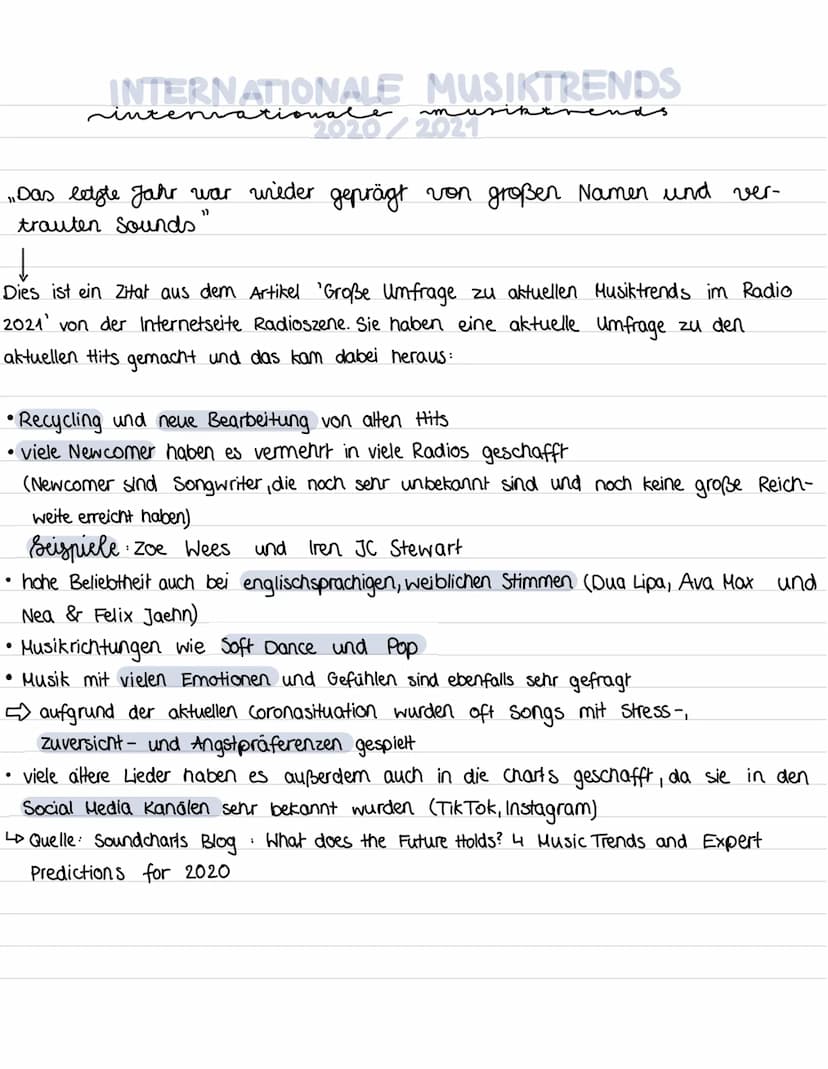 INTERNATIONALE MUSIKTRENDS
internationale musiktrends
2020/2021
„Das letzte Jahr war wieder geprägt von großen Namen und ver-
trauten Sounds"
↓
Dies ist ein Zitat aus dem Artikel 'Große Umfrage zu aktuellen Musiktrends im Radio
2021' von der Internetseite Radioszene. Sie haben eine aktuelle Umfrage zu den
aktuellen Hits gemacht und das kam dabei heraus:
• Recycling und neue Bearbeitung von alten Hits
• viele Newcomer haben es vermehrt in viele Radios geschafft
(Newcomer sind Songwriter, die noch sehr unbekannt sind und noch keine große Reich-
weite erreicht haben)
Beispiele: Zoe Wees und Iren JC Stewart
• hohe Beliebtheit auch bei englischsprachigen, weiblichen Stimmen (Dua Lipa, Ava Max und
Nea & Felix Jaehn)
• Musikrichtungen wie Soft Dance und Pop
• Musik mit vielen Emotionen und Gefühlen sind ebenfalls sehr gefragt
⇨ aufgrund der aktuellen Coronasituation wurden oft Songs mit Stress-,
Zuversicht- und Angstpräferenzen gespielt
• viele ältere Lieder haben es außerdem auch in die Charts geschafft, da sie in den
Social Media Kanälen sehr bekannt wurden (TikTok, Instagram)
↳ Quelle: Soundcharts Blog: What does the Future Holds? 4 Music Trends and Expert
Predictions for 2020